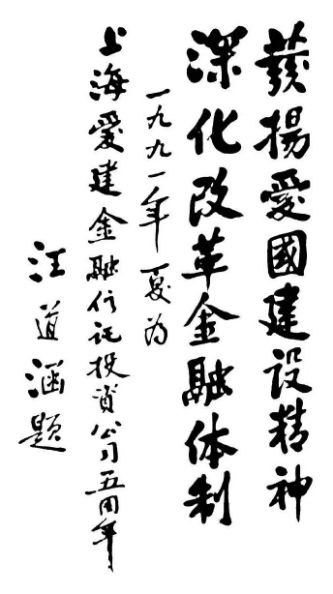 发揚愛國建设精神
深化改革金融体制
一九九一年夏为
上海爱建金融信托投资公司五周年
汪道涵题